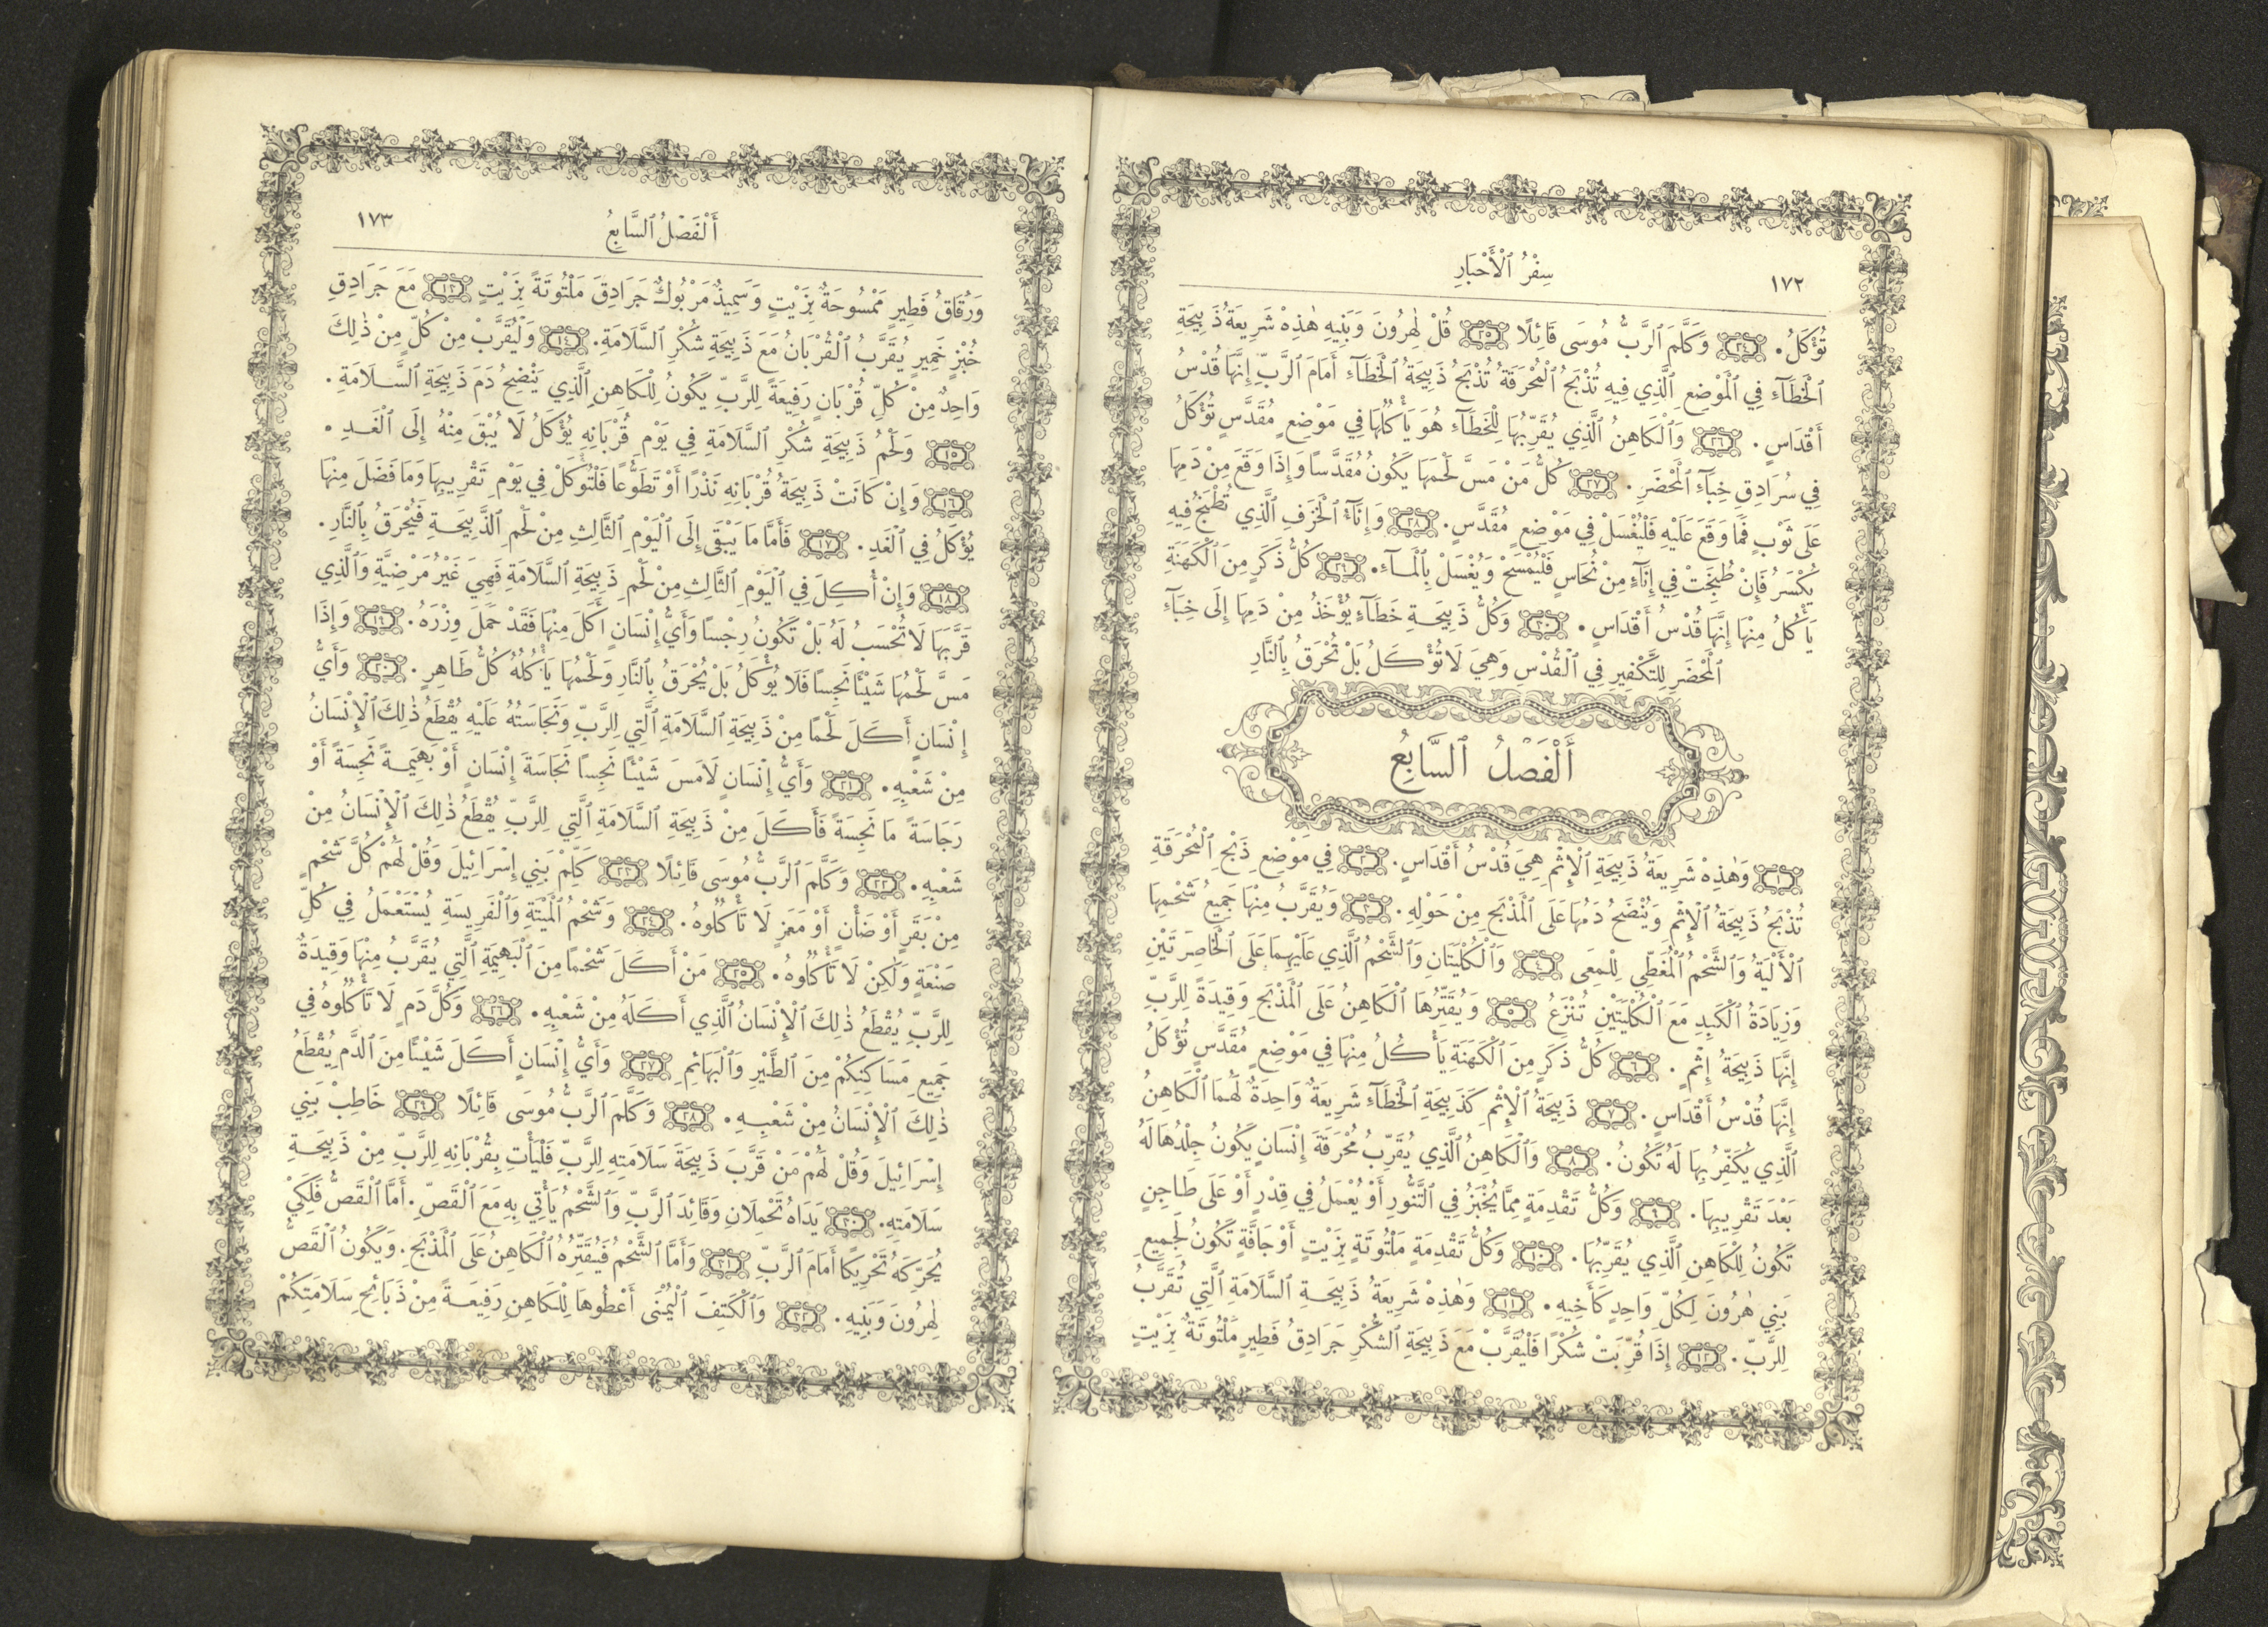 ١٧٢
سِفْرُ ٱلْأَحْبَارِ
تُؤْكَلُ. ٢٤ وَكَلَّمَ ٱلرَّبُّ مُوسَى قَائِلًا ٢٥ قُلْ لِهٰرُونَ وَبَنِيهِ هٰذِهْ شَرِيعَةُ ذَبِيحَةِ
ٱلْخَطَآءِ فِي ٱلْمَوْضِعِ ٱلَّذِي فِيهِ تُذْبَحُ ٱلْمُحْرَقَةُ تُذْبَحُ ذَبِيحَةُ ٱلْخَطَآءِ أَمَامَ ٱلرَّبِّ إِنَّهَا قُدْسُ
أَقْدَاسٍ. ٢٦ وَٱلْكَاهِنُ ٱلَّذِي يُقَرِّبُهَا لِلْخَطَآءِ هُوَ يَأْكُلُهَا فِي مَوْضِعٍ مُقَدَّسٍ تُؤْكَلُ
فِي سُرَادِقِ خِبَآءِ ٱلْمَحْضَرِ. ٢٧ كُلُّ مَنْ مَسَّ لَحْمَهَا يَكُونُ مُقَدَّسًا وَإِذَا وَقَعَ مِنْ دَمِهَا
عَلَى ثَوْبٍ فَمَا وَقَعَ عَلَيْهِ فَلْيُغْسَلْ فِي مَوْضِعٍ مُقَدَّسٍ. ٢٨ وَإِنَآءُ ٱلْخَزَفِ ٱلَّذِي تُطْبَخُ فِيهِ
يُكْسَرُ فَإِنْ طُبِخَتْ فِي إِنَآءٍ مِنْ نُحَاسٍ فَلْيُمْسَحْ وَيُغْسَلْ بِٱلْمَآءِ. ٢٩ كُلُّ ذَكَرٍ مِنَ ٱلْكَهَنَةِ
يَأْكُلُ مِنْهَا إِنَّهَا قُدْسُ أَقْدَاسٍ. ٣٠ وَكُلُّ ذَبِيحَةِ خَطَآءٍ يُؤْخَذُ مِنْ دَمِهَا إِلَى خِبَآءِ
ٱلْمَحْضَرِ لِلتَّكْفِيرِ فِي ٱلْقُدْسِ وَهِيَ لَا تُؤْكَلُ بَلْ تُحْرَقُ بِٱلنَّارِ
أَلْفَصْلُ ٱلسَّابِعُ
١ وَهٰذِهْ شَرِيعَةُ ذَبِيحَةِ ٱلْإِثْمِ هِيَ قُدْسُ أَقْدَاسٍ. ٢ فِي مَوْضِعِ ذَبْحِ ٱلْمُحْرَقَةِ
تُذْبَحُ ذَبِيحَةُ ٱلْإِثْمِ وَيُنْضَحُ دَمُهَا عَلَى ٱلْمَذْبَحِ مِنْ حَوْلِهِ. ٣ وَيُقَرَّبُ مِنْهَا جَمِيعُ شَحْمِهَا
ٱلْأَلْيَةُ وَٱلشَّحْمُ ٱلْمُغَطِّي لِلْمِعَى ٤ وَٱلْكُلْيَتَانِ وَٱلشَّحْمُ ٱلَّذِي عَلَيْهِمَا عَلَى ٱلْخَاصِرَتَيْنِ
وَزِيَادَةُ ٱلْكَبِدِ مَعَ ٱلْكُلْيَتَيْنِ تُنْتَزَعُ ٥ وَيُقَتِّرُهَا ٱلْكَاهِنُ عَلَى ٱلْمَذْبَحِ وَقِيدَةً لِلرَّبِّ
إِنَّهَا ذَبِيحَةُ إِثْمٍ. ٦ كُلُّ ذَكَرٍ مِنَ ٱلْكَهَنَةِ يَأْكُلُ مِنْهَا فِي مَوْضِعٍ مُقَدَّسٍ تُؤْكَلُ
إِنَّهَا قُدْسُ أَقْدَاسٍ. ٧ ذَبِيحَةُ ٱلْإِثْمِ كَذَبِيحَةِ ٱلْخَطَآءِ شَرِيعَةٌ وَاحِدَةٌ لَهُمَا ٱلْكَاهِنُ
ٱلَّذِي يُكَفِّرُ بِهَا لَهُ تَكُونُ. ٨ وَٱلْكَاهِنُ ٱلَّذِي يُقَرِّبُ مُحْرَقَةَ إِنْسَانٍ يَكُونُ جِلْدُهَا لَهُ
بَعْدَ تَقْرِيبِهَا. ٩ وَكُلُّ تَقْدِمَةٍ مِمَّا يُخْبَزُ فِي ٱلتَّنُّورِ أَوْ يُعْمَلُ فِي قِدْرٍ أَوْ عَلَى طَاجِنٍ
تَكُونُ لِلْكَاهِنِ ٱلَّذِي يُقَرِّبُهَا. ١٠ وَكُلُّ تَقْدِمَةٍ مَلْتُوتَةٍ بِزَيْتٍ أَوْ جَافَّةٍ تَكُونُ لِجَمِيعِ
بَنِي هٰرُونَ لِكُلِّ وَاحِدٍ كَأَخِيهِ. ١١ وَهٰذِهْ شَرِيعَةُ ذَبِيحَةِ ٱلسَّلَامَةِ ٱلَّتِي تُقَرَّبُ
لِلرَّبِّ. ١٢ إِذَا قُرِّبَتْ شُكْرًا فَلْيُقَرَّبْ مَعَ ذَبِيحَةِ ٱلشُّكْرِ جَرَادِقُ فَطِيرٍ مَلْتُوتَةٌ بِزَيْتٍ
أَلْفَصْلُ ٱلسَّابِعُ
١٧٣
وَرُقَاقُ فَطِيرٍ مَمْسُوحَةٌ بِزَيْتٍ وَسَمِيذٌ مَرْبُوكٌ جَرَادِقَ مَلْتُوتَةً بِزَيْتٍ ١٣ مَعَ جَرَادِقِ
خُبْزٍ خَمِيرٍ يُقَرَّبُ ٱلْقُرْبَانُ مَعَ ذَبِيحَةِ شُكْرِ ٱلسَّلَامَةِ. ١٤ وَلْيُقَرَّبْ مِنْ كُلٍّ مِنْ ذٰلِكَ
وَاحِدٌ مِنْ كُلِّ قُرْبَانٍ رَفِيعَةً لِلرَّبِّ يَكُونُ لِلْكَاهِنِ ٱلَّذِي يَنْضِحُ دَمَ ذَبِيحَةِ ٱلسَّلَامَةِ.
١٥ وَلَحْمُ ذَبِيحَةِ شُكْرِ ٱلسَّلَامَةِ فِي يَوْمِ قُرْبَانِهِ يُؤْكَلُ لَا يُبْقَ مِنْهُ إِلَى ٱلْغَدِ.
١٦ وَإِنْ كَانَتْ ذَبِيحَةُ قُرْبَانِهِ نَذْرًا أَوْ تَطَوُّعًا فَلْتُؤْكَلْ فِي يَوْمِ تَقْرِيبِهَا وَمَا فَضَلَ مِنْهَا
يُؤْكَلُ فِي ٱلْغَدِ. ١٧ فَأَمَّا مَا يَبْقَى إِلَى ٱلْيَوْمِ ٱلثَّالِثِ مِنْ لَحْمِ ٱلذَّبِيحَةِ فَيُحْرَقُ بِٱلنَّارِ.
١٨ وَإِنْ أُكِلَ فِي ٱلْيَوْمِ ٱلثَّالِثِ مِنْ لَحْمِ ذَبِيحَةِ ٱلسَّلَامَةِ فَهِيَ غَيْرُ مَرْضِيَّةٍ وَٱلَّذِي
قَرَّبَهَا لَا تُحْسَبُ لَهُ بَلْ تَكُونُ رِجْسًا وَأَيُّ إِنْسَانٍ أَكَلَ مِنْهَا فَقَدْ حَمَلَ وِزْرَهُ. ١٩ وَإِذَا
مَسَّ لَحْمُهَا شَيْئًا نَجِسًا فَلَا يُؤْكَلُ بَلْ يُحْرَقُ بِٱلنَّارِ وَلَحْمُهَا يَأْكُلُهُ كُلُّ طَاهِرٍ. ٢٠ وَأَيُّ
إِنْسَانٍ أَكَلَ لَحْمًا مِنْ ذَبِيحَةِ ٱلسَّلَامَةِ ٱلَّتِي لِلرَّبِّ وَنَجَاسَتُهُ عَلَيْهِ يُقْطَعُ ذٰلِكَ ٱلْإِنْسَانُ
مِنْ شَعْبِهِ. ٢١ وَأَيُّ إِنْسَانٍ لَامَسَ شَيْئًا نَجِسًا نَجَاسَةَ إِنْسَانٍ أَوْ بَهِيمَةً نَجِسَةً أَوْ
رَجَاسَةً مَا نَجِسَةً فَأَكَلَ مِنْ ذَبِيحَةِ ٱلسَّلَامَةِ ٱلَّتِي لِلرَّبِّ يُقْطَعُ ذٰلِكَ ٱلْإِنْسَانُ مِنْ
شَعْبِهِ. ٢٢ وَكَلَّمَ ٱلرَّبُّ مُوسَى قَائِلًا ٢٣ كَلِّمْ بَنِي إِسْرَائِيلَ وَقُلْ لَهُمْ كُلَّ شَحْمٍ
مِنْ بَقَرٍ أَوْ ضَأْنٍ أَوْ مَعَزٍ لَا تَأْكُلُوهُ. ٢٤ وَشَحْمُ ٱلْمَيْتَةِ وَٱلْفَرِيسَةِ يُسْتَعْمَلُ فِي كُلِّ
صَنْعَةٍ وَلٰكِنْ لَا تَأْكُلُوهُ. ٢٥ مَنْ أَكَلَ شَحْمًا مِنَ ٱلْبَهِيمَةِ ٱلَّتِي يُقَرَّبُ مِنْهَا وَقِيدَةٌ
لِلرَّبِّ يُقْطَعُ ذٰلِكَ ٱلْإِنْسَانُ ٱلَّذِي أَكَلَهُ مِنْ شَعْبِهِ. ٢٦ وَكُلَّ دَمٍ لَا تَأْكُلُوهُ فِي
جَمِيعِ مَسَاكِنِكُمْ مِنَ ٱلطَّيْرِ وَٱلْبَهَائِمِ ٢٧ وَأَيُّ إِنْسَانٍ أَكَلَ شَيْئًا مِنَ ٱلدَّمِ يُقْطَعُ
ذٰلِكَ ٱلْإِنْسَانُ مِنْ شَعْبِهِ. ٢٨ وَكَلَّمَ ٱلرَّبُّ مُوسَى قَائِلًا ٢٩ خَاطِبْ بَنِي
إِسْرَائِيلَ وَقُلْ لَهُمْ مَنْ قَرَّبَ ذَبِيحَةَ سَلَامَتِهِ لِلرَّبِّ فَلْيَأْتِ بِقُرْبَانِهِ لِلرَّبِّ مِنْ ذَبِيحَةِ
سَلَامَتِهِ. ٣٠ يَدَاهُ تَحْمِلَانِ وَقَائِدَ ٱلرَّبِّ وَٱلشَّحْمُ يَأْتِي بِهِ مَعَ ٱلْقَصِّ. أَمَّا ٱلْقَصُّ فَلِكَيْ
يُحَرِّكَهُ تَحْرِيكًا أَمَامَ ٱلرَّبِّ ٣١ وَأَمَّا ٱلشَّحْمُ فَيُقَتِّرُهُ ٱلْكَاهِنُ عَلَى ٱلْمَذْبَحِ. وَيَكُونُ ٱلْقَصُّ
لِهٰرُونَ وَبَنِيهِ. ٣٢ وَٱلْكَتِفَ ٱلْيُمْنَى أَعْطُوهَا لِلْكَاهِنِ رَفِيعَةً مِنْ ذَبَائِحِ سَلَامَتِكُمْ